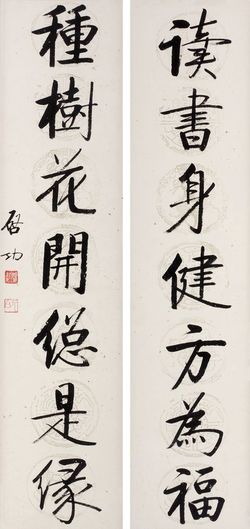 读書身健方為福
種樹花開總是缘
启功